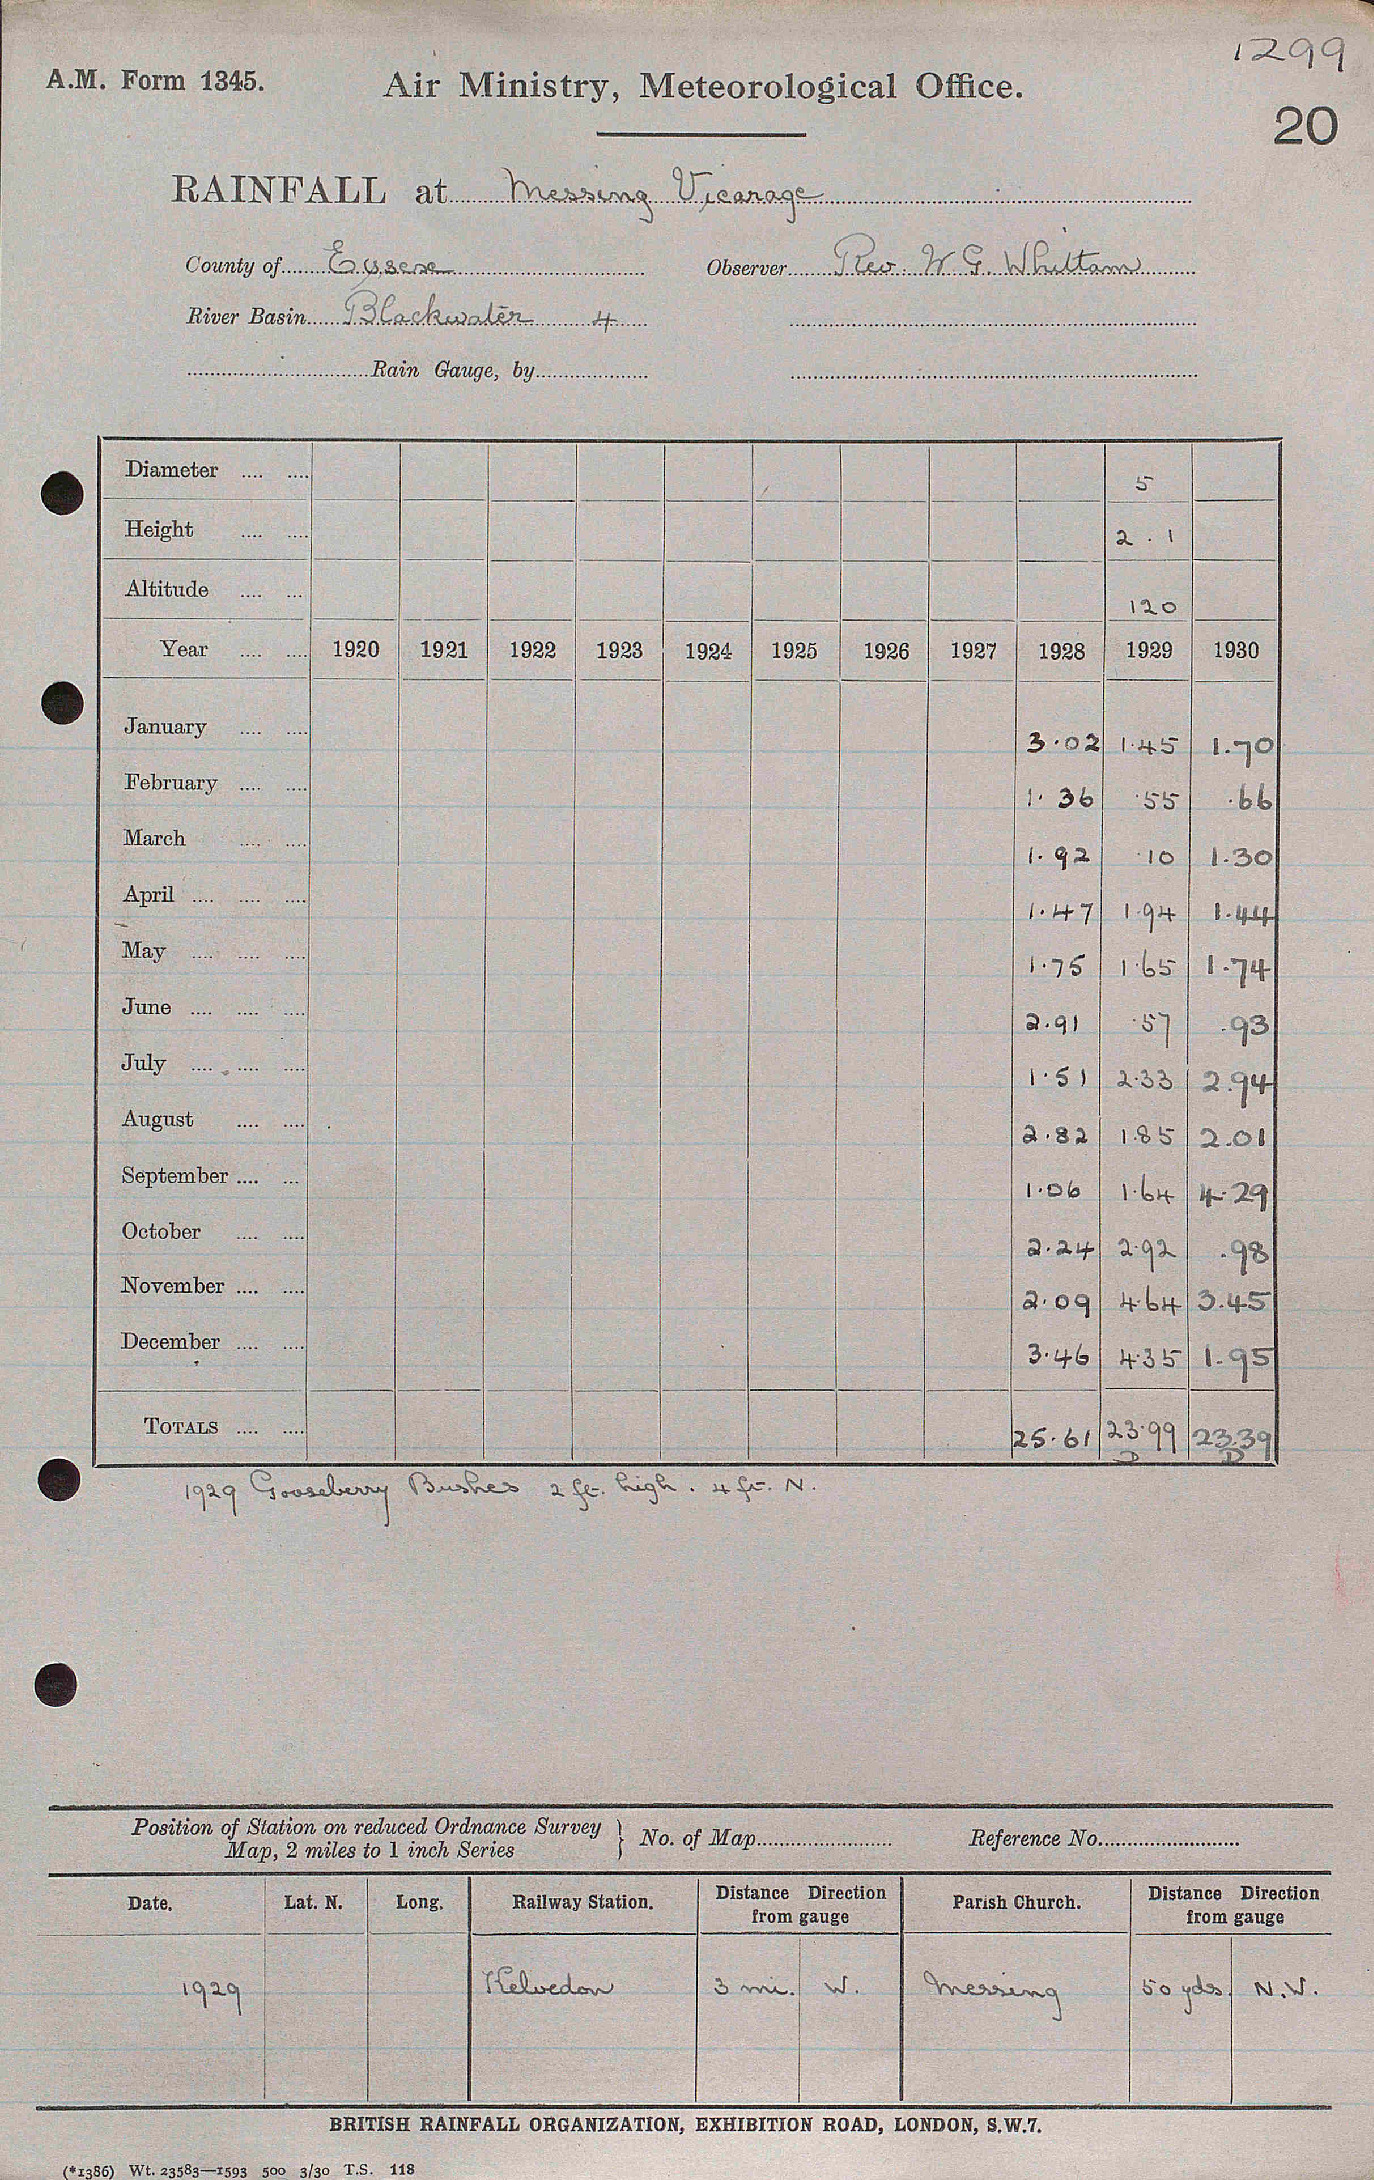 1299
A.M. Form 1345. Air Ministry, Meteorological Office.
20
RAINFALL at Messing Vicarage
County of Essex Observer Rev. W. G. Whittam
River Basin Blackwater 4
Rain Gauge, by
Diameter 5
Height 2 . 1
Altitude 120
Year 1920 1921 1922 1923 1924 1925 1926 1927 1928 1929 1930
January 3.02 1.45 1.70
February 1.36 .55 .66
March 1.92 .10 1.30
April 1.47 1.94 1.44
May 1.75 1.65 1.74
June 2.91 .57 .93
July 1.51 2.33 2.94
August 2.82 1.85 2.01
September 1.06 1.64 4.29
October 2.24 2.92 .98
November 2.09 4.64 3.45
December 3.46 4.35 1.95
TOTALS 25.61 23.99 23.39
D D
1929 Gooseberry Bushes 2 ft. high. 4 ft. N.
Position of Station on reduced Ordnance Survey
Map, 2 miles to 1 inch Series } No. of Map Reference No.
Date. Lat. N. Long. Railway Station. Distance Direction from gauge Parish Church. Distance Direction from gauge
1929 Kelvedon 3 mi. W. Messing 50 yds. N.W.
BRITISH RAINFALL ORGANIZATION, EXHIBITION ROAD, LONDON, S.W.7.
(*1386) Wt. 23583—1593 500 3/30 T.S. 118